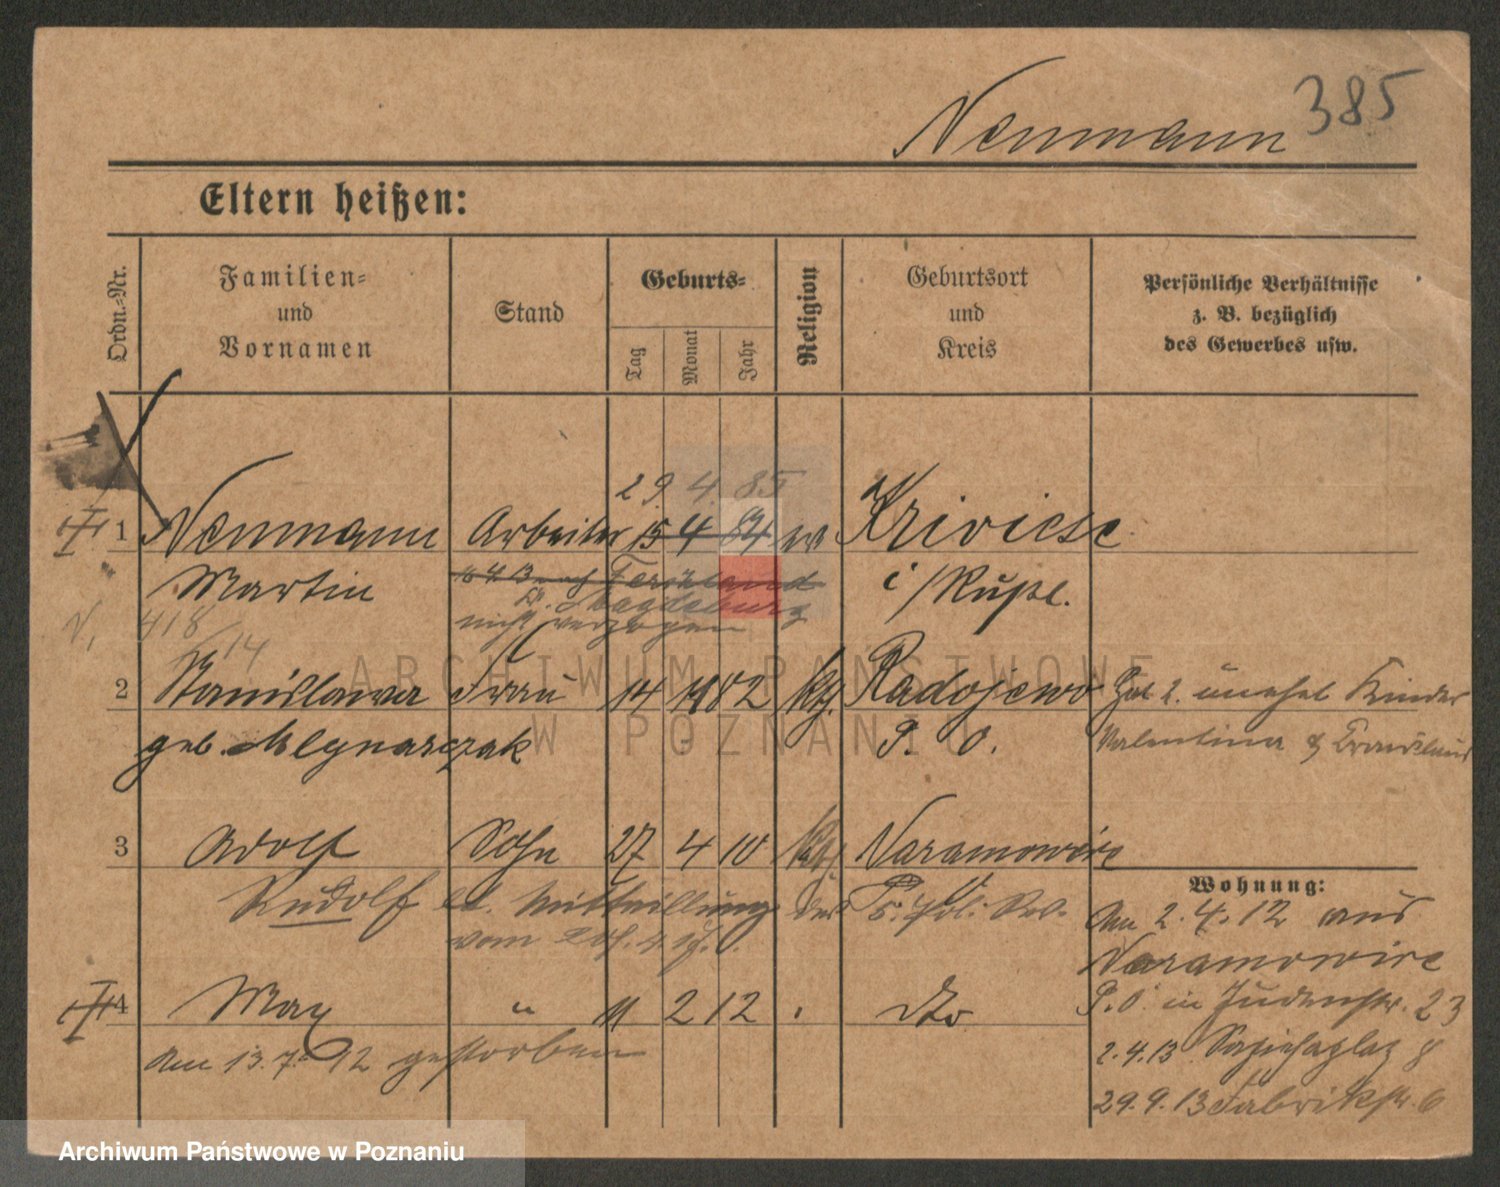 Neumann 385
Eltern heißen:
Ordn.-Nr.
Familien-
und
Vornamen
Stand
Geburts-
Tag
Monat
Jahr
Religion
Geburtsort
und
Kreis
Persönliche Verhältnisse
z. B. bezüglich
des Gewerbes usw.
29 4. 85
1 Neumann Arbeiter 15 4 84 ev Kriviese
Martin
Magdeburg
nicht verzogen
418/14
2 Stanislawa Frau 14 11 82 kth. Radojewo Hat 2. unehel Kinder
geb. Mlynarczak P. O. Valentina
3 Adolf Sohn 27 4 10 kth. Naramowice
Rudolf lt. Mitteilung des
vom
Wohnung:
Am 2.4.12 aus
Naramowice
4 Max " 11 2 12 dto
P. O. in Judenstr. 23
Am 13.7.12 gestorben
2.4.13 Sapiehaplatz 8
29.9.13 Fabrikstr. 6
ARCHIWUM PAŃSTWOWE
W POZNANIU
Archiwum Państwowe w Poznaniu